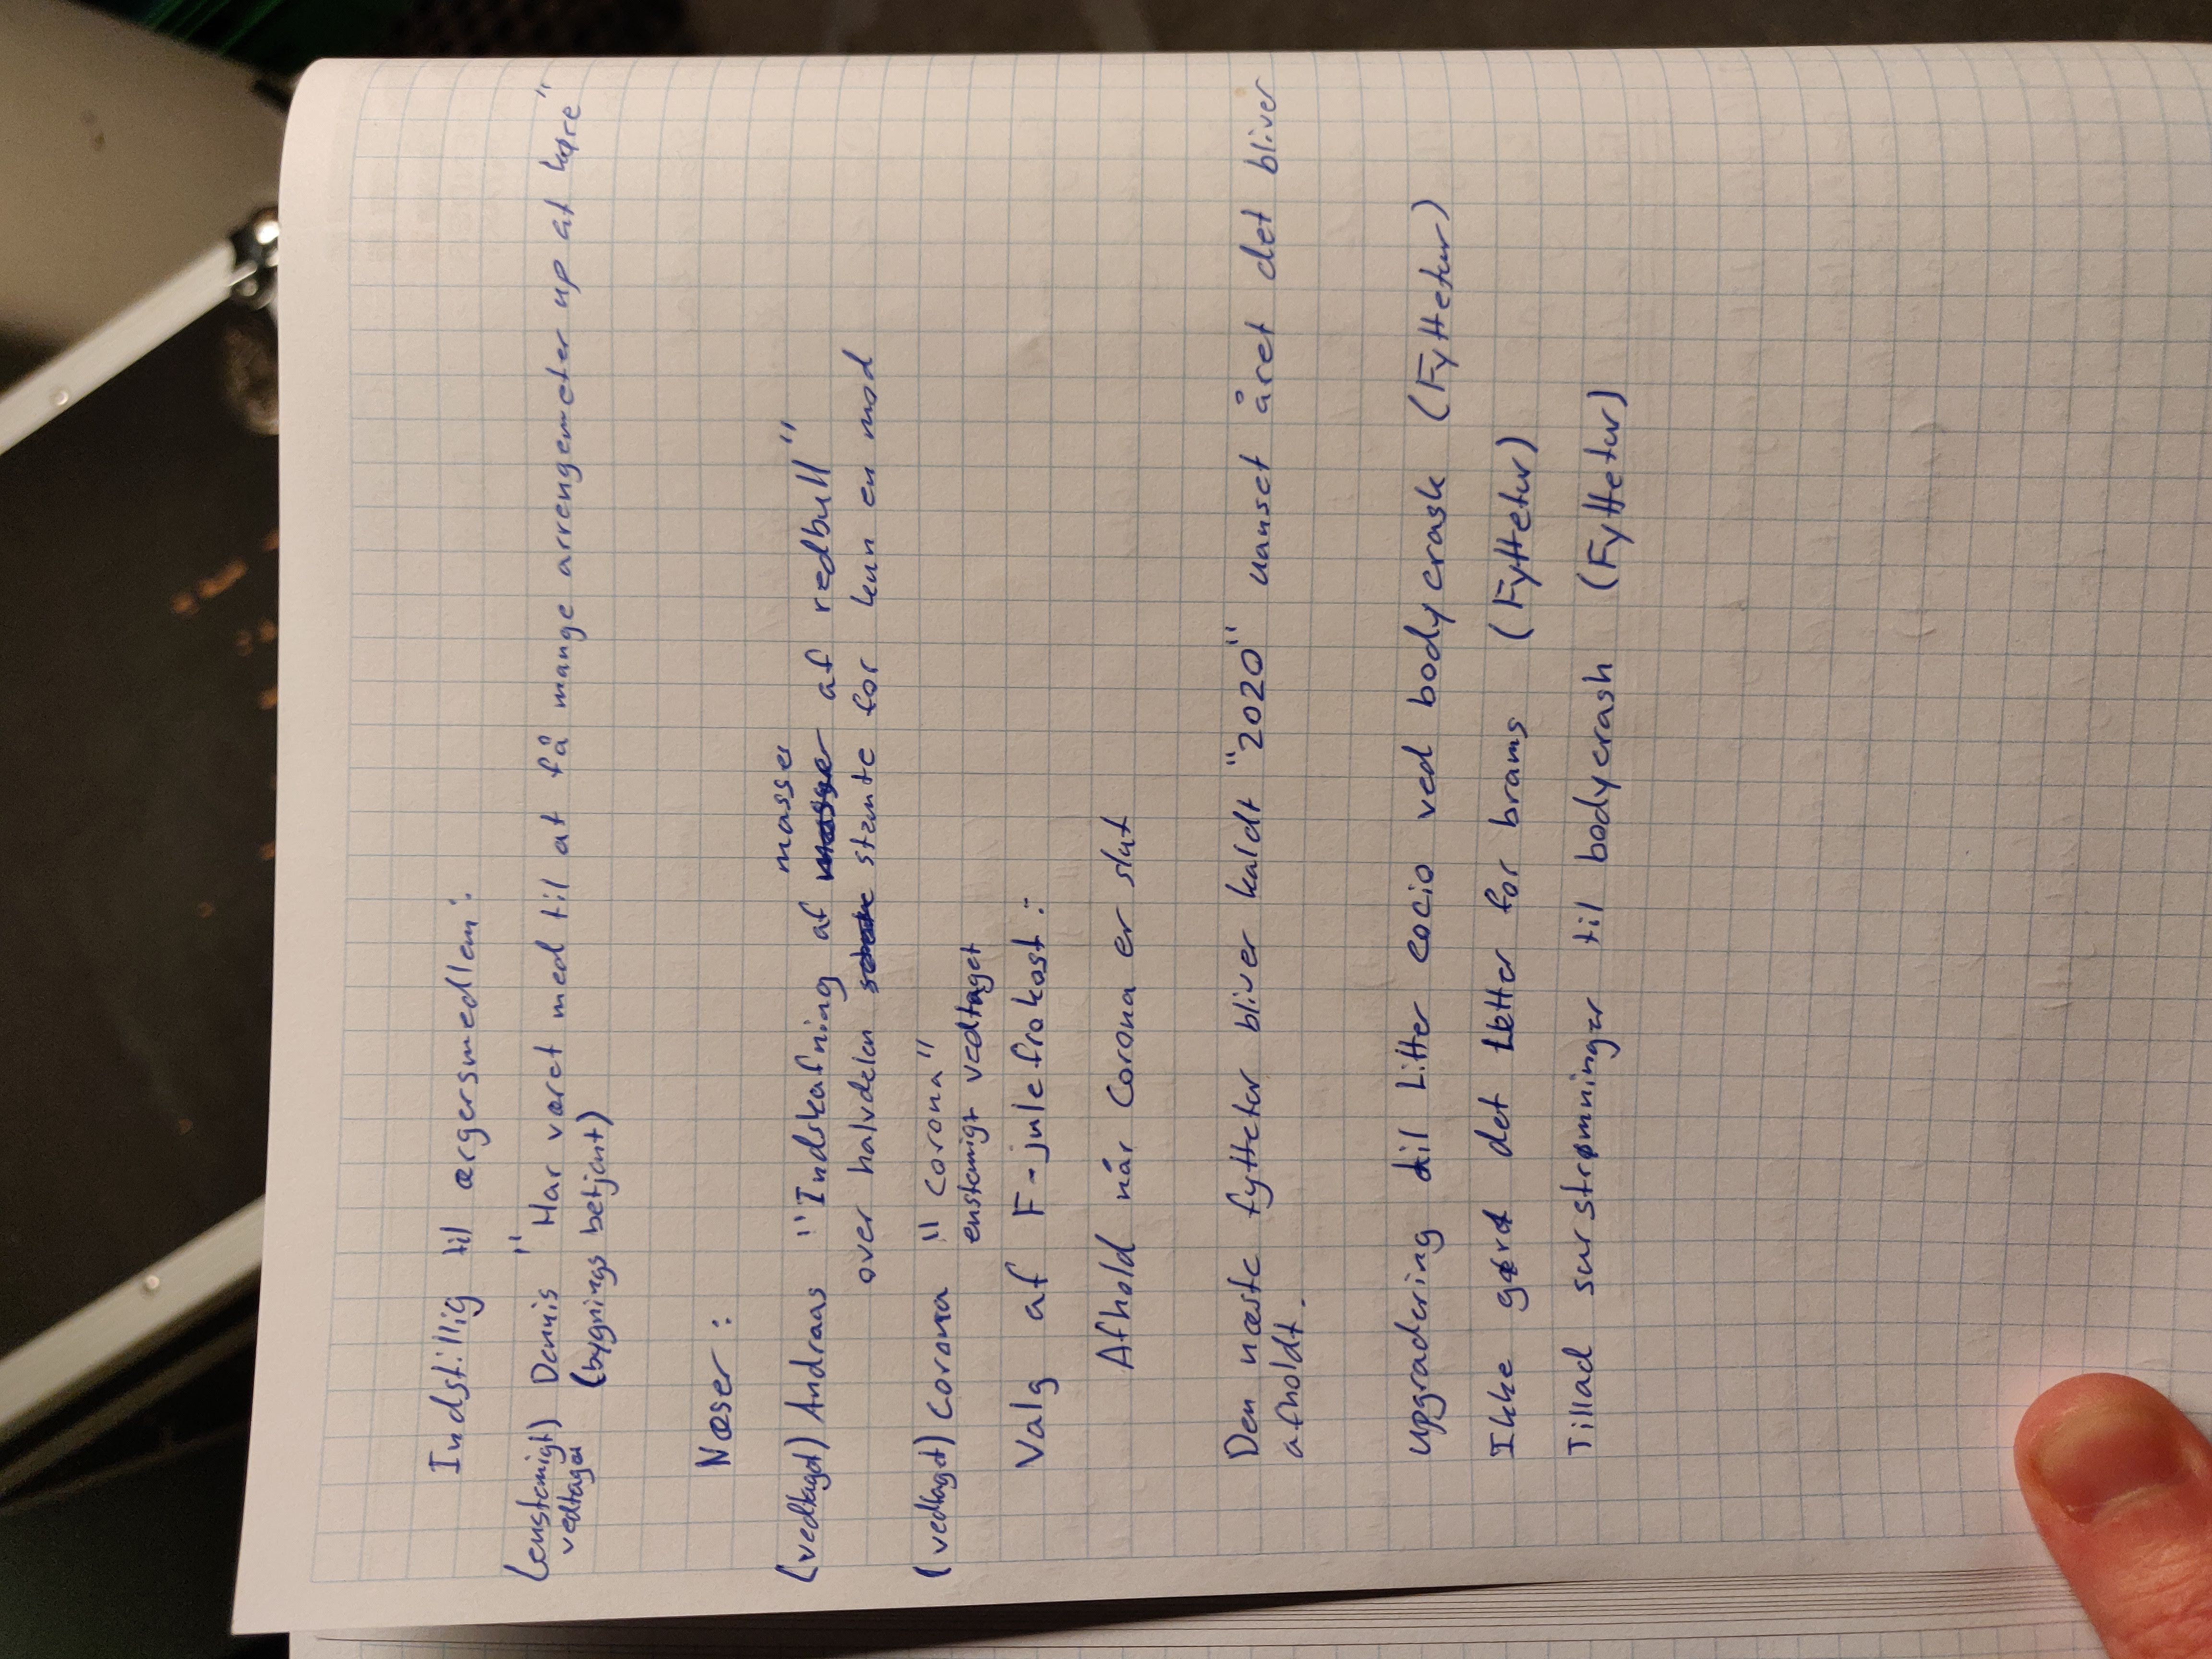 Indstillig til ærgersmedlem:
(enstemigt) Dennis "Har været med til at få mange arrengementer up at køre"
vedtaget (bygnings betjent)
Næser:
masses
(vedtaget) Andraas "Indskafning af af redbull"
over halvdelen stemte for kun en mod
(vedtaget) Corona "corona"
enstemigt vedtaget
Valg af F-julefrokost:
Afhold når Corona er slut
Den næste fyttetur bliver kaldt "2020" uanset året det bliver
afholdt.
upgradering til Litter cocio ved bodycrash (Fyttetur)
Ikke gørd det letter for brams (Fyttetur)
Tillad surstrømninger til bodycrash (Fyttetur)